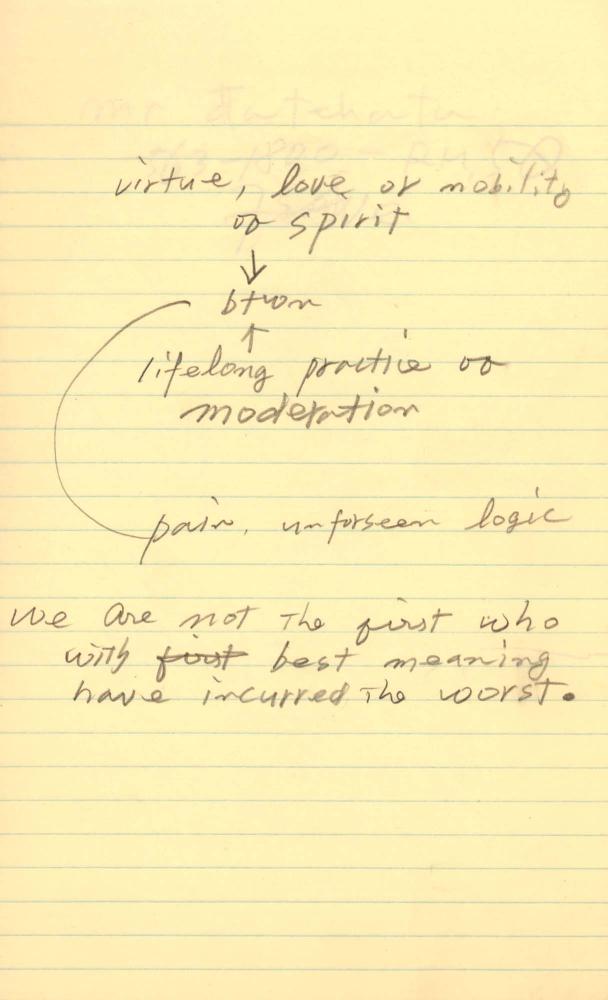 virtue, love or nobility
of spirit
↓
btwn
↑
lifelong practice of
moderation
pain, unforseen logic
We are not the first who
with first best meaning
have incurred the worst.